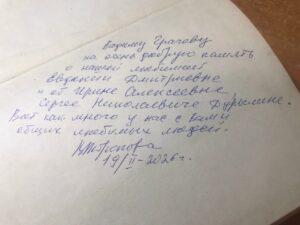 Вадиму Грачеву
на очень добрую память
о нашей любимой
Евдокии Дмитриевне
и об Ирине Алексеевне,
Сергее Николаевиче Дурылине.
Вот как много у нас с Вами
общих любимых людей.
19/II-2026г.